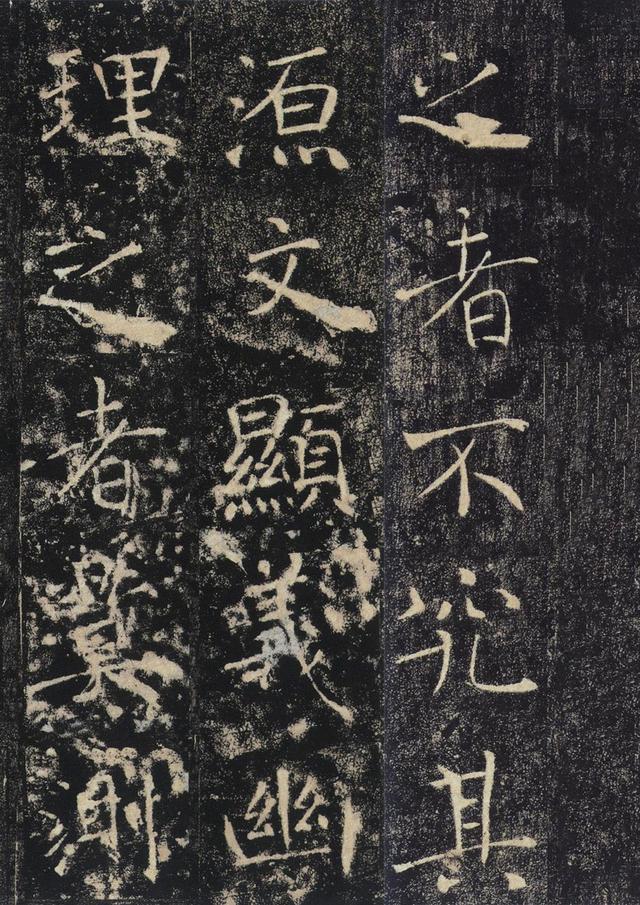 之者不究其
源文顯義幽
理之者測